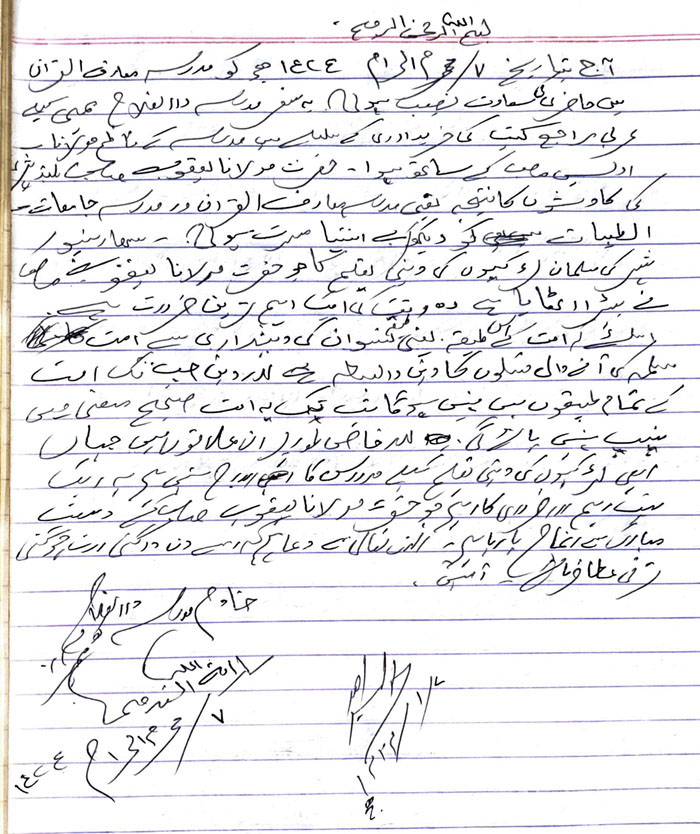 بسم اللہ الرحمن الرحیم
آج بتاریخ ۷/محرم الحرام ۱٤۲٤ ھج کو مدرسہ معارف القرآن
میں حاضری کی سعادت نصیب ہوئی۔ یہ سفر مدرسہ دارالفلاح کیلئے
عربی مراجع کتب کی خریداری کے سلسلے میں مدرسہ کے ناظم مولانا
ادریس صاحب کے ساتھ ہوا۔ حضرت مولانا یعقوب صاحب
کی کاوشوں کا نتیجہ یعنی مدرسہ معارف القرآن اور مدرسہ جامعات
الطیبات کو دیکھ کر بے انتہا مسرت ہوئی۔ سہارنپور
شہر کی مسلمان لڑکیوں کی دینی تعلیم کا جو حضرت مولانا یعقوب صاحب
نے بیڑا اٹھایا ہے وہ وقت کی بہت اہم ترین ضرورت ہے۔
اسلئے کہ امت کے اس طبقہ یعنی نسوان کی دینداری سے امت
مسلمہ کی آنے والی نسلوں کا دین وابستہ ہے اور دین جب تک امت
کے تمام طبقوں میں نہیں ہوگا تب تک یہ امت صحیح معنی میں
پنپ نہیں پائے گی۔ اور خاص طور پر ان علاقوں میں جہاں
ابھی لڑکیوں کی دینی تعلیم کیلئے مدارس کا رواج نہیں ہے یہ
بہت اہم اور ضروری کام ہے جو حضرت مولانا یعقوب صاحب کے دست
مبارک سے انجام پا رہا ہے۔ اللہ تعالی سے دعا ہے کہ اسے دن دوگنی رات چوگنی
ترقی عطا فرمائے آمین۔
خادم مدرسہ دارالفلاح
۷/محرم الحرام
۱٤۲٤